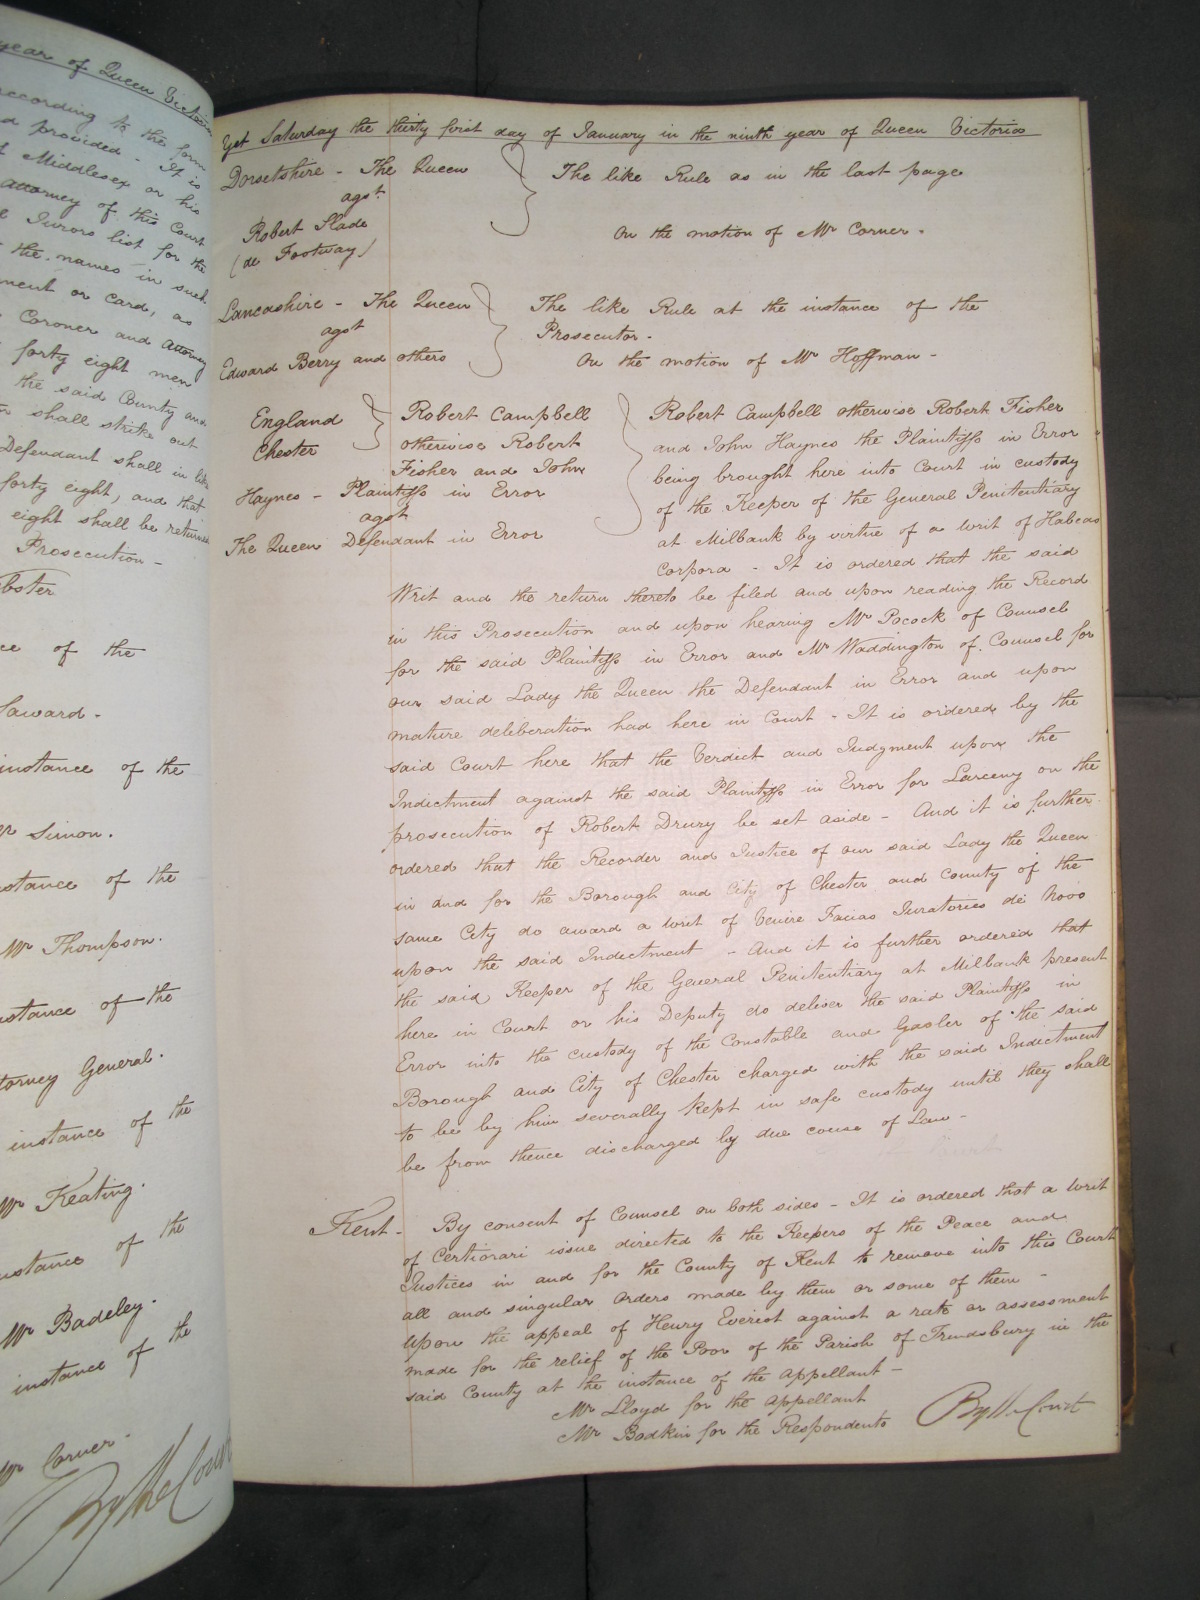 year of Queen Victoria
according to the form
d provided - It is
Middlesex or his
attorney of this Court
Jurors list for the
the names in such
ment or card, as
Coroner and attorney
forty eight men
the said County and
shall strike out
Defendant shall in like
forty eight, and that
eight shall be returned
Prosecution -
ebster
ce of the
Saward -
instance of the
Mr Simon.
nstance of the
Mr Thompson.
nstance of the
ttorney General.
instance of the
Mr Keating.
nstance of the
Mr Badeley.
instance of the
Mr Corner -
By the Court
Yet Saturday the thirty first day of January in the ninth year of Queen Victoria
Dorsetshire - The Queen
agst
Robert Slade
(de Footway)
The like Rule as in the last page
On the motion of Mr Corner -
Lancashire - The Queen
agst
Edward Berry and others
The like Rule at the instance of the
Prosecutor -
On the motion of Mr Hoffman -
England
Chester
Robert Campbell
otherwise Robert
Fisher and John
Haynes - Plaintiffs in Error
agst
The Queen Defendant in Error
Robert Campbell otherwise Robert Fisher
and John Haynes the Plaintiffs in Error
being brought here into Court in custody
of the Keeper of the General Penitentiary
at Milbank by virtue of a writ of Habeas
Corpora - It is ordered that the said
Writ and the return thereto be filed and upon reading the Record
in this Prosecution and upon hearing Mr Pocock of Counsel
for the said Plaintiffs in Error and Mr Waddington of Counsel for
our said Lady the Queen the Defendant in Error and upon
mature deliberation had here in Court - It is ordered by the
said Court here that the Verdict and Judgment upon the
Indictment against the said Plaintiffs in Error for Larceny on the
prosecution of Robert Drury be set aside - And it is further
ordered that the Recorder and Justice of our said Lady the Queen
in and for the Borough and City of Chester and County of the
same City do award a writ of Venire Facias Juratories de Novo
upon the said Indictment - And it is further ordered that
the said Keeper of the General Penitentiary at Milbank present
here in Court or his Deputy do deliver the said Plaintiffs in
Error into the custody of the Constable and Gaoler of the said
Borough and City of Chester charged with the said Indictment
to be by him severally kept in safe custody until they shall
be from thence discharged by due course of Law -
Kent - By consent of Counsel on both sides - It is ordered that a writ
of Certiorari issue directed to the Keepers of the Peace and
Justices in and for the County of Kent to remove into this Court
all and singular Orders made by them or some of them -
upon the appeal of Henry Everist against a rate or assessment
made for the relief of the Poor of the Parish of Frindsbury in the
said County at the instance of the Appellant -
Mr Lloyd for the Appellant
Mr Bodkin for the Respondents
By the Court